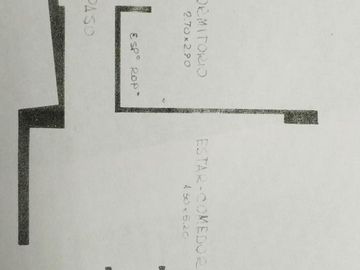 PASO
ESP° ROP°
DORMITORIO
270x290
ESTAR-COMEDOR